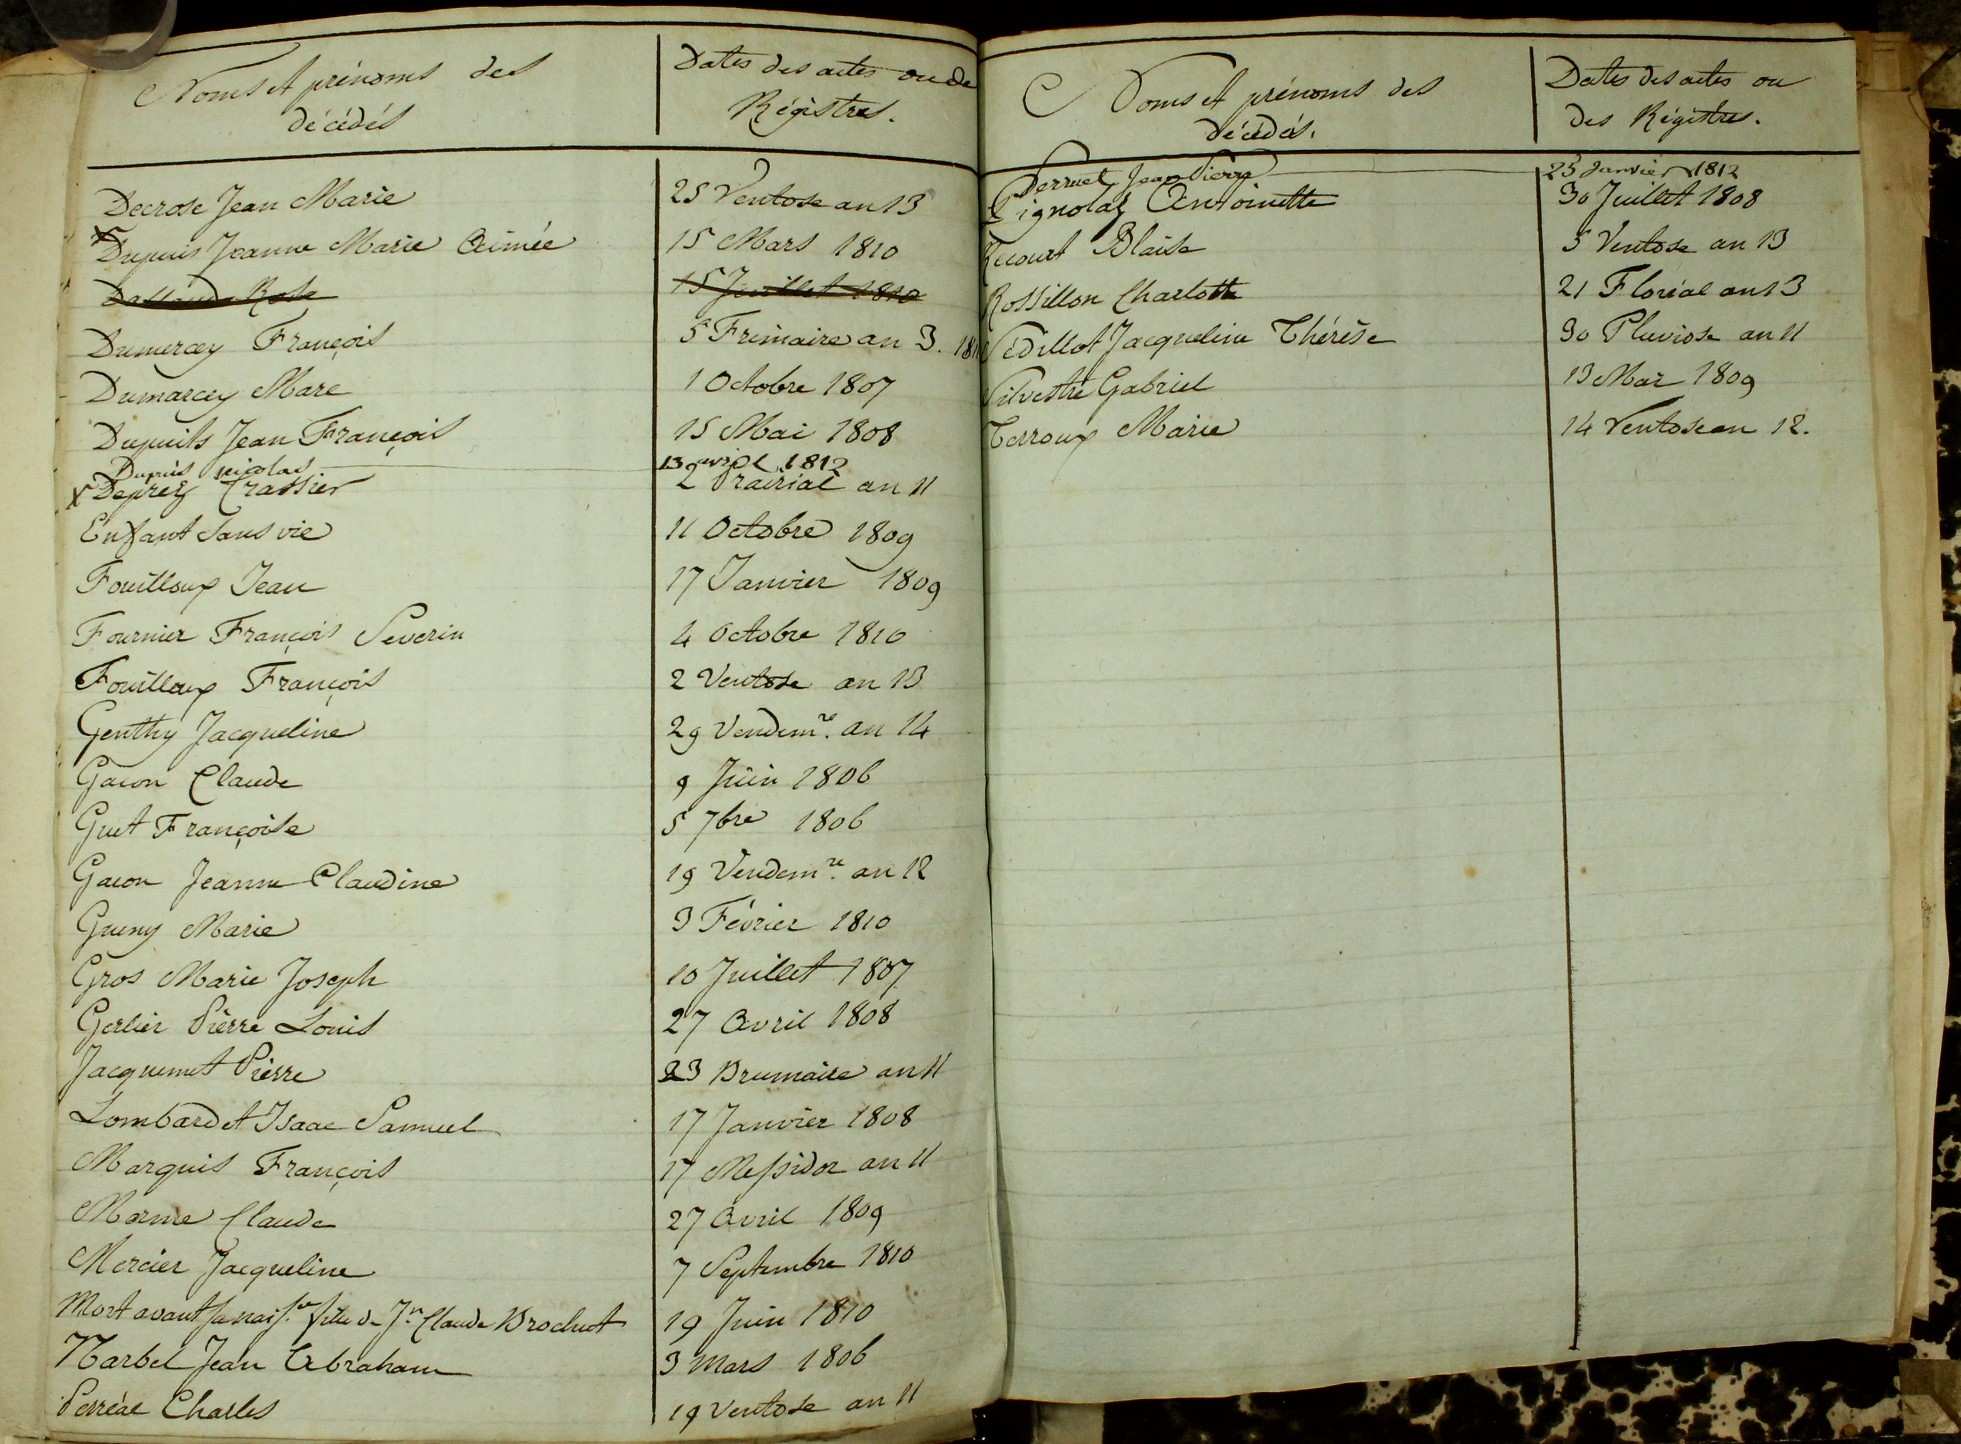 Noms et prénoms des
décédés
Dates des actes ou de
Régistres.
Decrose Jean Marie 25 Ventose an 13
Dupuis Jeanne Marie Aimée 15 Mars 1810
Rose 15 Juillet 1810
Dumercey François 5 Frimaire an 3.
Dumarcey Marc 1 Octobre 1807
Dupuits Jean François 15 Mai 1808
Dupuis nicolas 13 avril 1812
x Deprez Crassier 2 Prairial an 11
Enfant sans vie 11 Octobre 1809
Fouilloux Jean 17 Janvier 1809
Fournier François Severin 4 Octobre 1810
Fouilloux François 2 Ventose an 13
Genthy Jacqueline 29 Vendem.re an 14
Gacon Claude 9 Juin 1806
Guet Françoise 5 7bre 1806
Gacon Jeanne Claudine 19 Vendem.re an 12
Gueny Marie 3 Février 1810
Gros Marie Joseph 10 Juillet 1807
Gerlier Pierre Louis 27 Avril 1808
Jacquemet Pierre 23 Brumaire an 11
Lombardet Isaac Samuel 17 Janvier 1808
Marquis François 17 Messidor an 11
Marme Claude 27 Avril 1809
Mercier Jacqueline 7 Septembre 1810
Mort avant sa naiss.ce fille de J.n Claude Brochet 19 Juin 1810
Marbel Jean Abraham 3 Mars 1806
Perréal Charles 19 Ventose an 11
Noms et prénoms des
décédés.
Dates des actes ou
des Régistres.
Perruet Jean Pierre 25 Janvier 1812
Pignolas Antoinette 30 Juillet 1808
Recourt Blaise 5 Ventose an 13
Rossillon Charlotte 21 Floréal an 13
Sédillot Jacqueline Thérèse 30 Pluviose an 11
Silvestre Gabriel 13 Mai 1809
Terroux Marie 14 Ventose an 12.